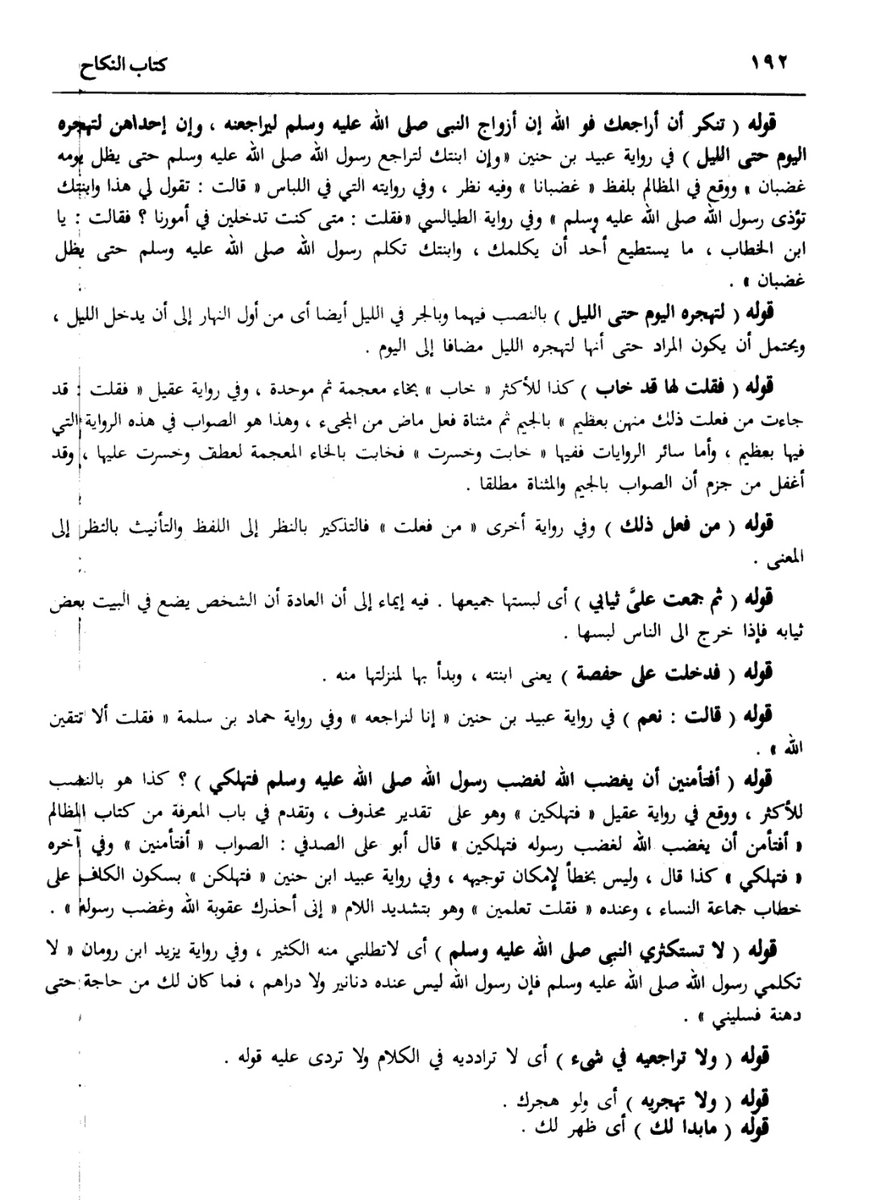 ١٩٢ كتاب النكاح
قوله ( تنكر أن أراجعك فو الله إن أزواج النبى صلى الله عليه وسلم ليراجعنه ، وإن إحداهن لتهجره
اليوم حتى الليل ) في رواية عبيد بن حنين « وإن ابنتك لتراجع رسول الله صلى الله عليه وسلم حتى يظل يومه
غضبان » ووقع في المظالم بلفظ « غضبانا » وفيه نظر ، وفي روايته التي في اللباس « قالت : تقول لي هذا وابنتك
تؤذى رسول الله صلى الله عليه وسلم » وفي رواية الطيالسي « فقلت : متى كنت تدخلين في أمورنا ؟ فقالت : يا
ابن الخطاب ، ما يستطيع أحد أن يكلمك ، وابنتك تكلم رسول الله صلى الله عليه وسلم حتى يظل
غضبان » .
قوله ( لتهجره اليوم حتى الليل ) بالنصب فيهما وبالجر في الليل أيضا أى من أول النهار إلى أن يدخل الليل ،
ويحتمل أن يكون المراد حتى أنها لتهجره الليل مضافا إلى اليوم .
قوله ( فقلت لها قد خاب ) كذا للأكثر « خاب » بخاء معجمة ثم موحدة ، وفي رواية عقيل « فقلت : قد
جاءت من فعلت ذلك منهن بعظيم » بالجيم ثم مثناة فعل ماض من المجىء ، وهذا هو الصواب في هذه الرواية التي
فيها بعظيم ، وأما سائر الروايات ففيها « خابت وخسرت » فخابت بالخاء المعجمة لعطف وخسرت عليها ، وقد
أغفل من جزم أن الصواب بالجيم والمثناة مطلقا .
قوله ( من فعل ذلك ) وفي رواية أخرى « من فعلت » فالتذكير بالنظر إلى اللفظ والتأنيث بالنظر إلى
المعنى .
قوله ( ثم جمعت علىَّ ثيابي ) أى لبستها جميعها . فيه إيماء إلى أن العادة أن الشخص يضع في البيت بعض
ثيابه فإذا خرج الى الناس لبسها .
قوله ( فدخلت على حفصة ) يعنى ابنته ، وبدأ بها لمنزلتها منه .
قوله ( قالت : نعم ) في رواية عبيد بن حنين « إنا لنراجعه » وفي رواية حماد بن سلمة « فقلت ألا تتقين
الله » .
قوله ( أفتأمنين أن يغضب الله لغضب رسول الله صلى الله عليه وسلم فتهلكي ) ؟ كذا هو بالنصب
للأكثر ، ووقع في رواية عقيل « فتهلكين » وهو على تقدير محذوف ، وتقدم في باب المعرفة من كتاب المظالم
« أفتأمن أن يغضب الله لغضب رسوله فتهلكين » قال أبو على الصدفي : الصواب « أفتأمنين » وفي آخره
« فتهلكي » كذا قال ، وليس بخطأ لإمكان توجيهه ، وفي رواية عبيد ابن حنين « فتهلكن » بسكون الكاف على
خطاب جماعة النساء ، وعنده « فقلت تعلمين » وهو بتشديد اللام « إنى أحذرك عقوبة الله وغضب رسوله » .
قوله ( لا تستكثري النبى صلى الله عليه وسلم ) أى لاتطلبي منه الكثير ، وفي رواية يزيد ابن رومان « لا
تكلمي رسول الله صلى الله عليه وسلم فإن رسول الله ليس عنده دنانير ولا دراهم ، فما كان لك من حاجة حتى
دهنة فسليني » .
قوله ( ولا تراجعيه في شىء ) أى لا تراددیه في الكلام ولا تردى عليه قوله .
قوله ( ولا تهجريه ) أى ولو هجرك .
قوله ( مابدا لك ) أى ظهر لك .